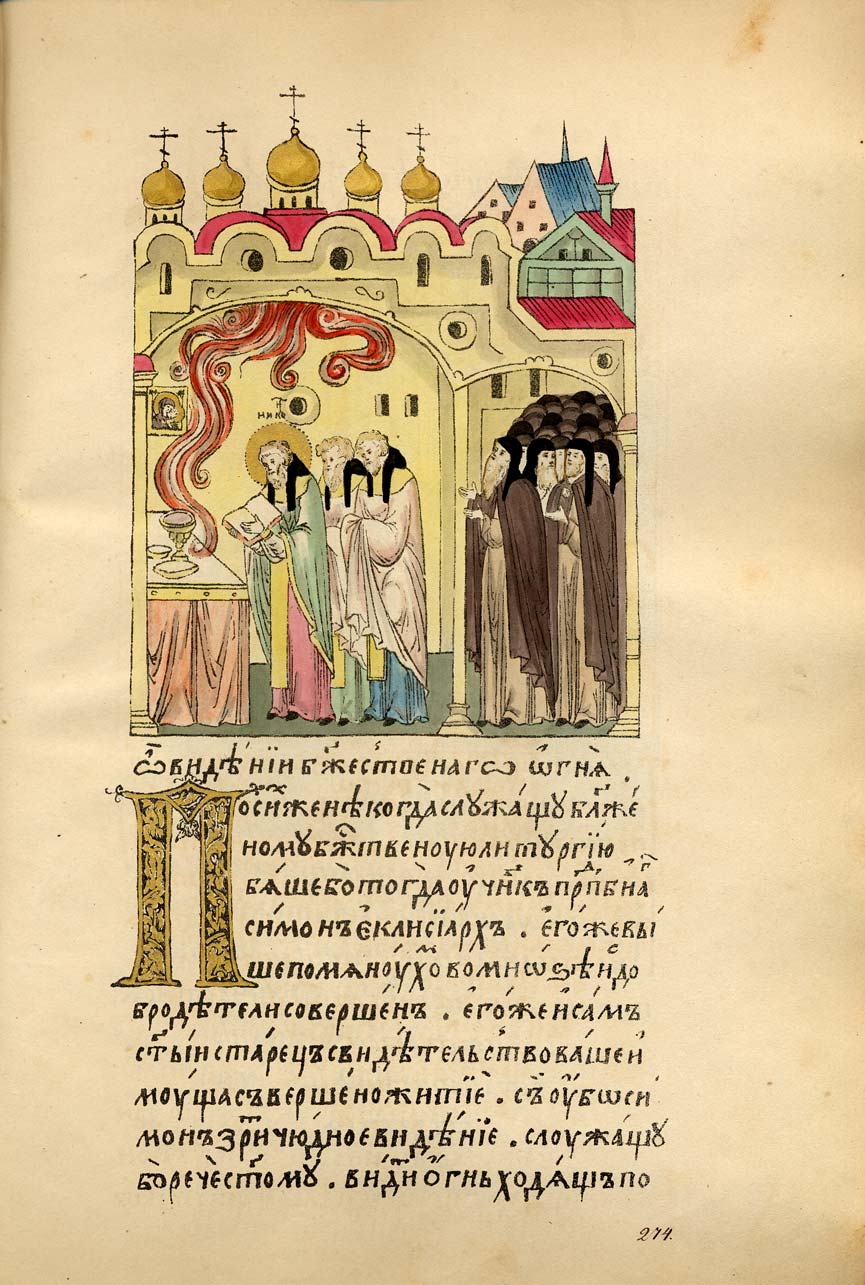 НИКО
Ѿ видѣнїи бж҃ественаго ѻгнѧ .
По си же нѣкогда слѹжащѹ блаже
номѹ бжⷭ҇твеноую литѹргїю
бѧше бо тогда оучн҃къ прпⷣбнаⷢ҇
симонъ еклисїархъ . его же вы
ше помѧноухоⷨ во мноѕѣⷯ и до
бродѣтели совершенъ . его же и самъ
ст҃ыи старецъ свидѣтельствоваше и
моуща съвершено житїе . съ оубѡ си
монъ зритъ чюдное видѣнїе . слоужащѹ
бо рече ст҃омѹ . видитъ огнь ходѧщъ по
274.